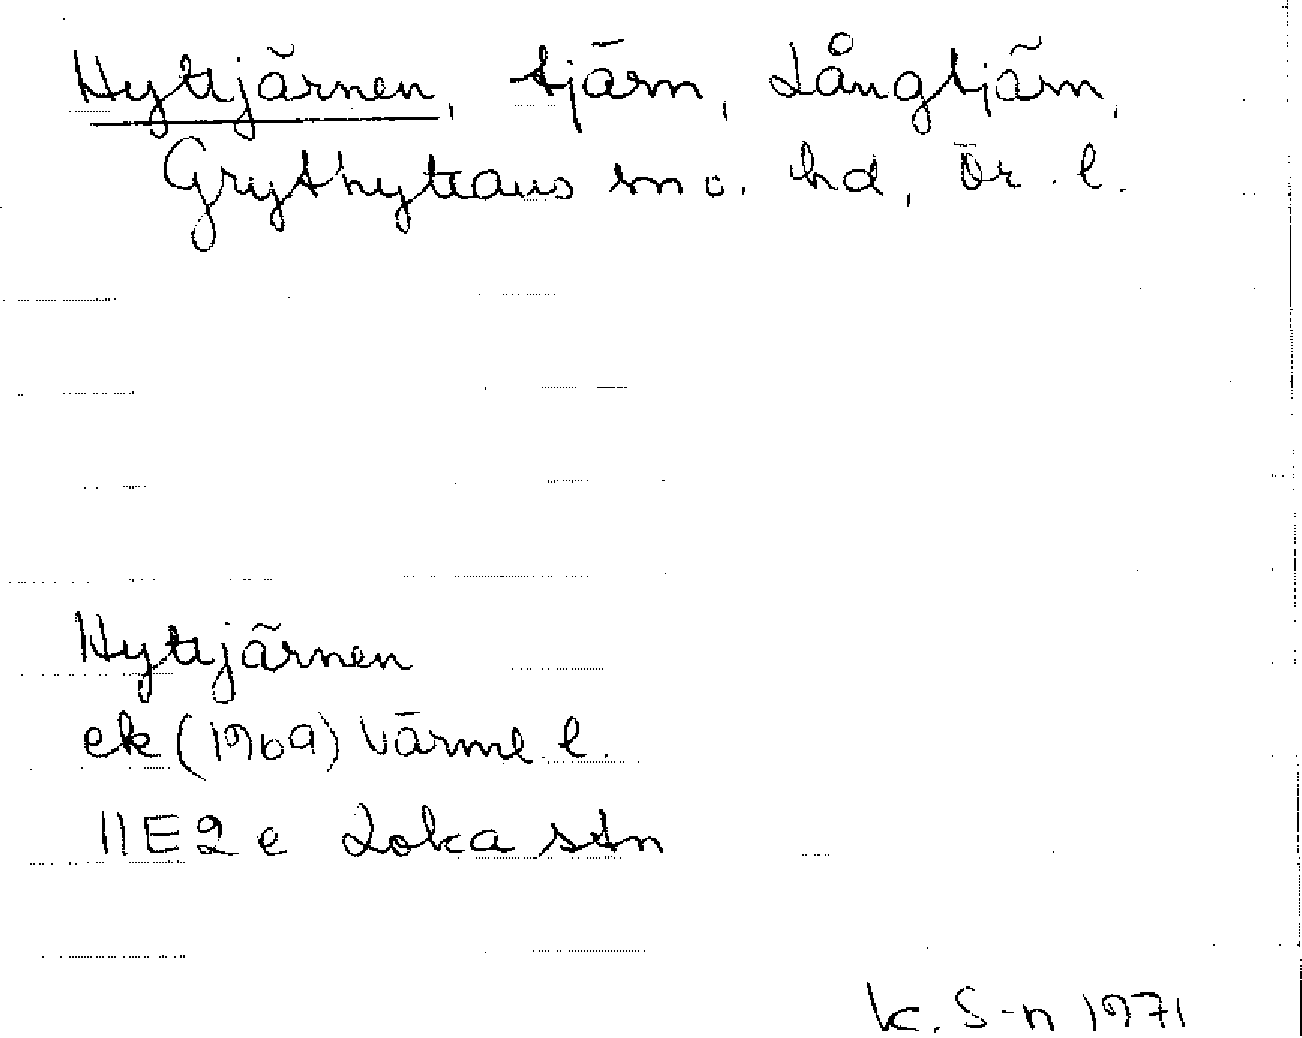 Hyttjärnen, tjärn, Långtjärn,
Grythyttans sn o. hd, Ör. l.
Hyttjärnen
ek (1969) Värml. l.
11E2e Loka stn
K. S-n 1971